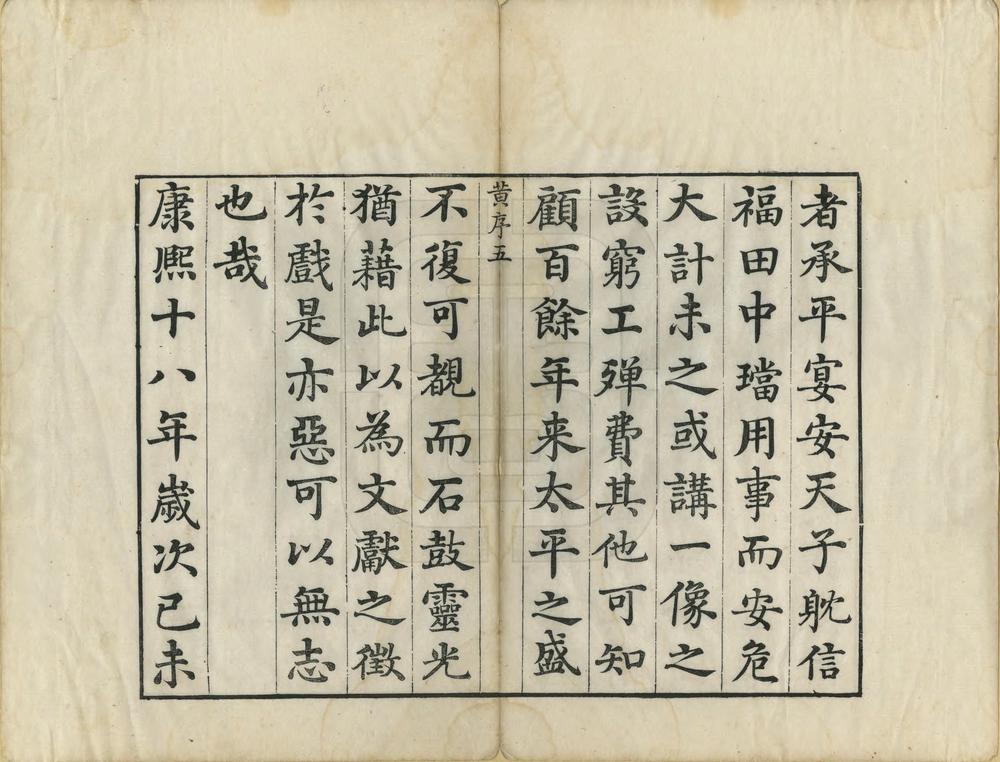 者承平宴安天子躭信
福田中璫用事而安危
大計未之或講一像之
設窮工殫費其他可知
顧百餘年来太平之盛
黄序五
不復可覩而石鼓靈光
猶藉此以為文獻之徵
於戲是亦惡可以無志
也哉
康熈十八年嵗次己未